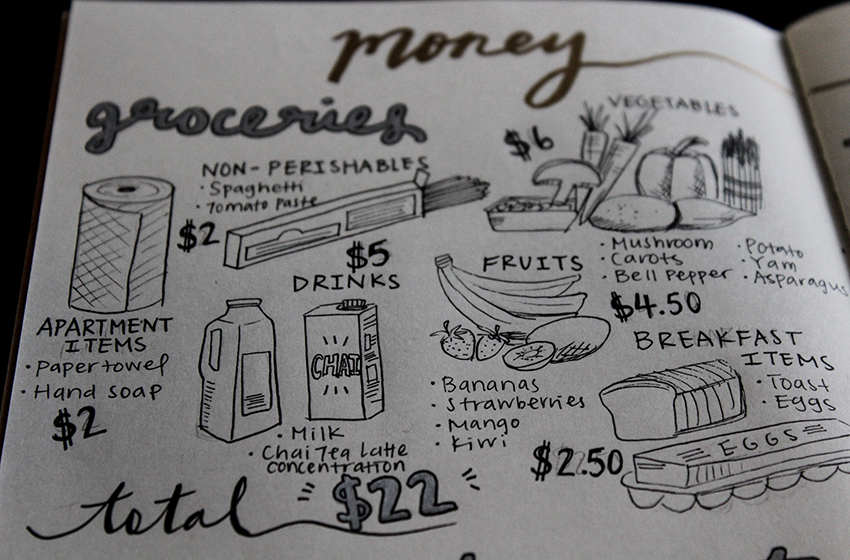 money
groceries
VEGETABLES
$6
NON-PERISHABLES
• Spaghetti
• Tomato Paste
$2
$5
DRINKS
CHAI
• Milk
• Chai Tea Latte
concentration
APARTMENT
ITEMS
• Paper towel
• Hand soap
$2
FRUITS
• Bananas
• Strawberries
• Mango
• Kiwi
• Mushroom
• Carots
• Bell Pepper
• Potato
• Yam
• Asparagus
$4.50
BREAKFAST
ITEMS
• Toast
• Eggs
EGGS
$2.50
total $22